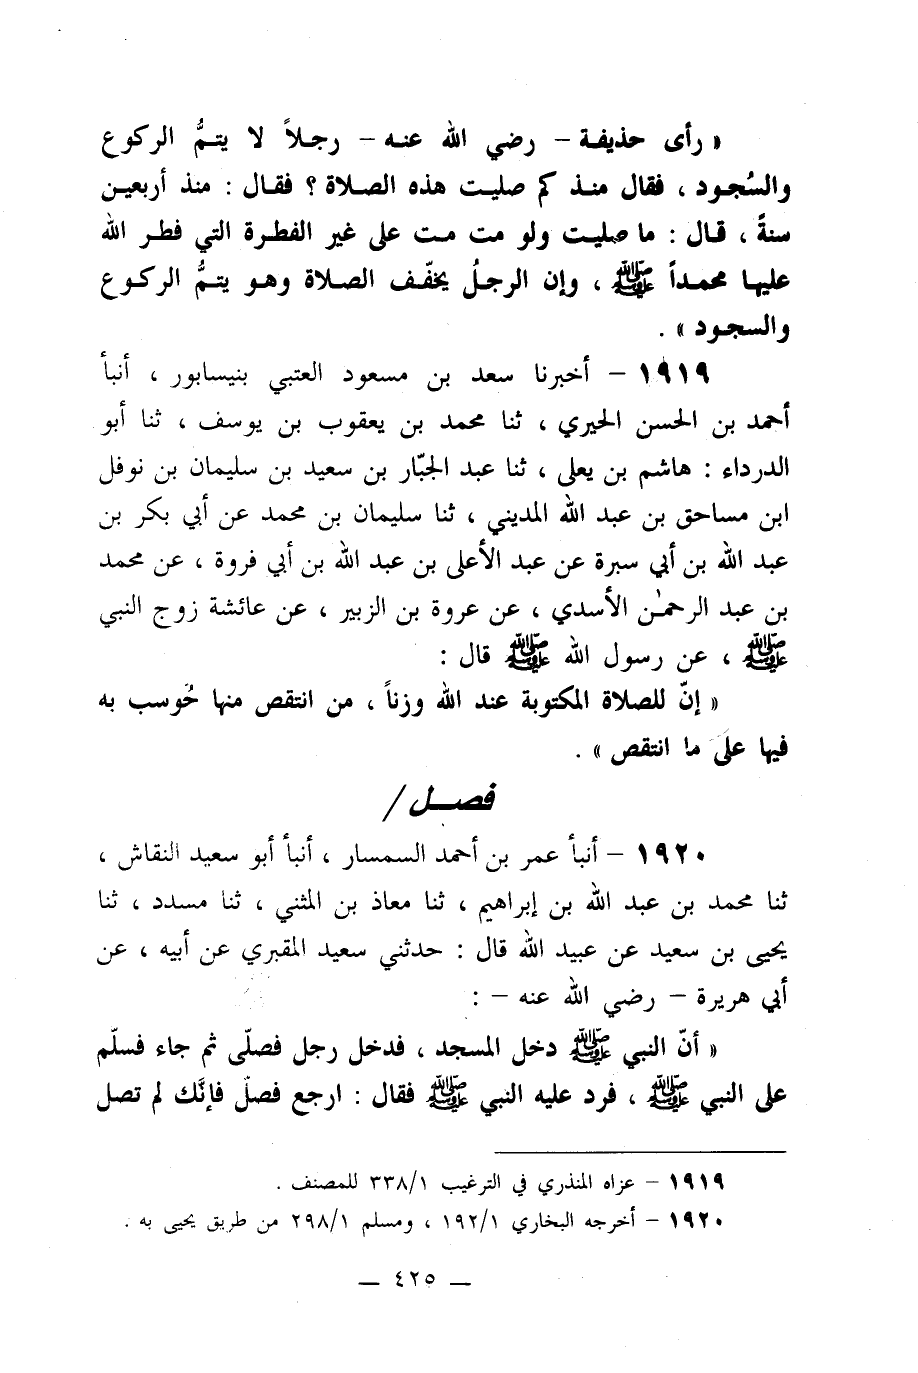 « رأى حذيفة – رضي الله عنه – رجلاً لا يتمُّ الركوع
والسُجود ، فقال منذ كم صليت هذه الصلاة ؟ فقال : منذ أربعين
سنةً ، قال : ما صليت ولو مت مت على غير الفطرة التي فطر الله
عليها محمداً ﷺ ، وإن الرجلُ يخفّف الصلاة وهو يتمُّ الركوع
والسجود » .
١٩١٩ – أخبرنا سعد بن مسعود العتبي بنيسابور ، أنبأ
أحمد بن الحسن الحيري ، ثنا محمد بن يعقوب بن يوسف ، ثنا أبو
الدرداء : هاشم بن يعلى ، ثنا عبد الجبّار بن سعيد بن سليمان بن نوفل
ابن مساحق بن عبد الله المديني ، ثنا سليمان بن محمد عن أبي بكر بن
عبد الله بن أبي سبرة عن عبد الأعلى بن عبد الله بن أبي فروة ، عن محمد
بن عبد الرحمٰن الأسدي ، عن عروة بن الزبير ، عن عائشة زوج النبي
ﷺ ، عن رسول الله ﷺ قال :
« إنّ للصلاة المكتوبة عند الله وزناً ، من انتقص منها حُوسب به
فيها على ما انتقص » .
فصل /
١٩٢٠ – أنبأ عمر بن أحمد السمسار ، أنبأ أبو سعيد النقاش ،
ثنا محمد بن عبد الله بن إبراهيم ، ثنا معاذ بن المثني ، ثنا مسدد ، ثنا
يحيى بن سعيد عن عبيد الله قال : حدثني سعيد المقبري عن أبيه ، عن
أبي هريرة – رضي الله عنه – :
« أنّ النبي ﷺ دخل المسجد ، فدخل رجل فصلّى ثم جاء فسلّم
على النبي ﷺ ، فرد عليه النبي ﷺ فقال : ارجع فصلّ فإنَّك لم تصل
١٩١٩ – عزاه المنذري في الترغيب ٣٣٨/١ للمصنف .
١٩٢٠ – أخرجه البخاري ١٩٢/١ ، ومسلم ٢٩٨/١ من طريق يحيى به .
— ٤٢٥ —